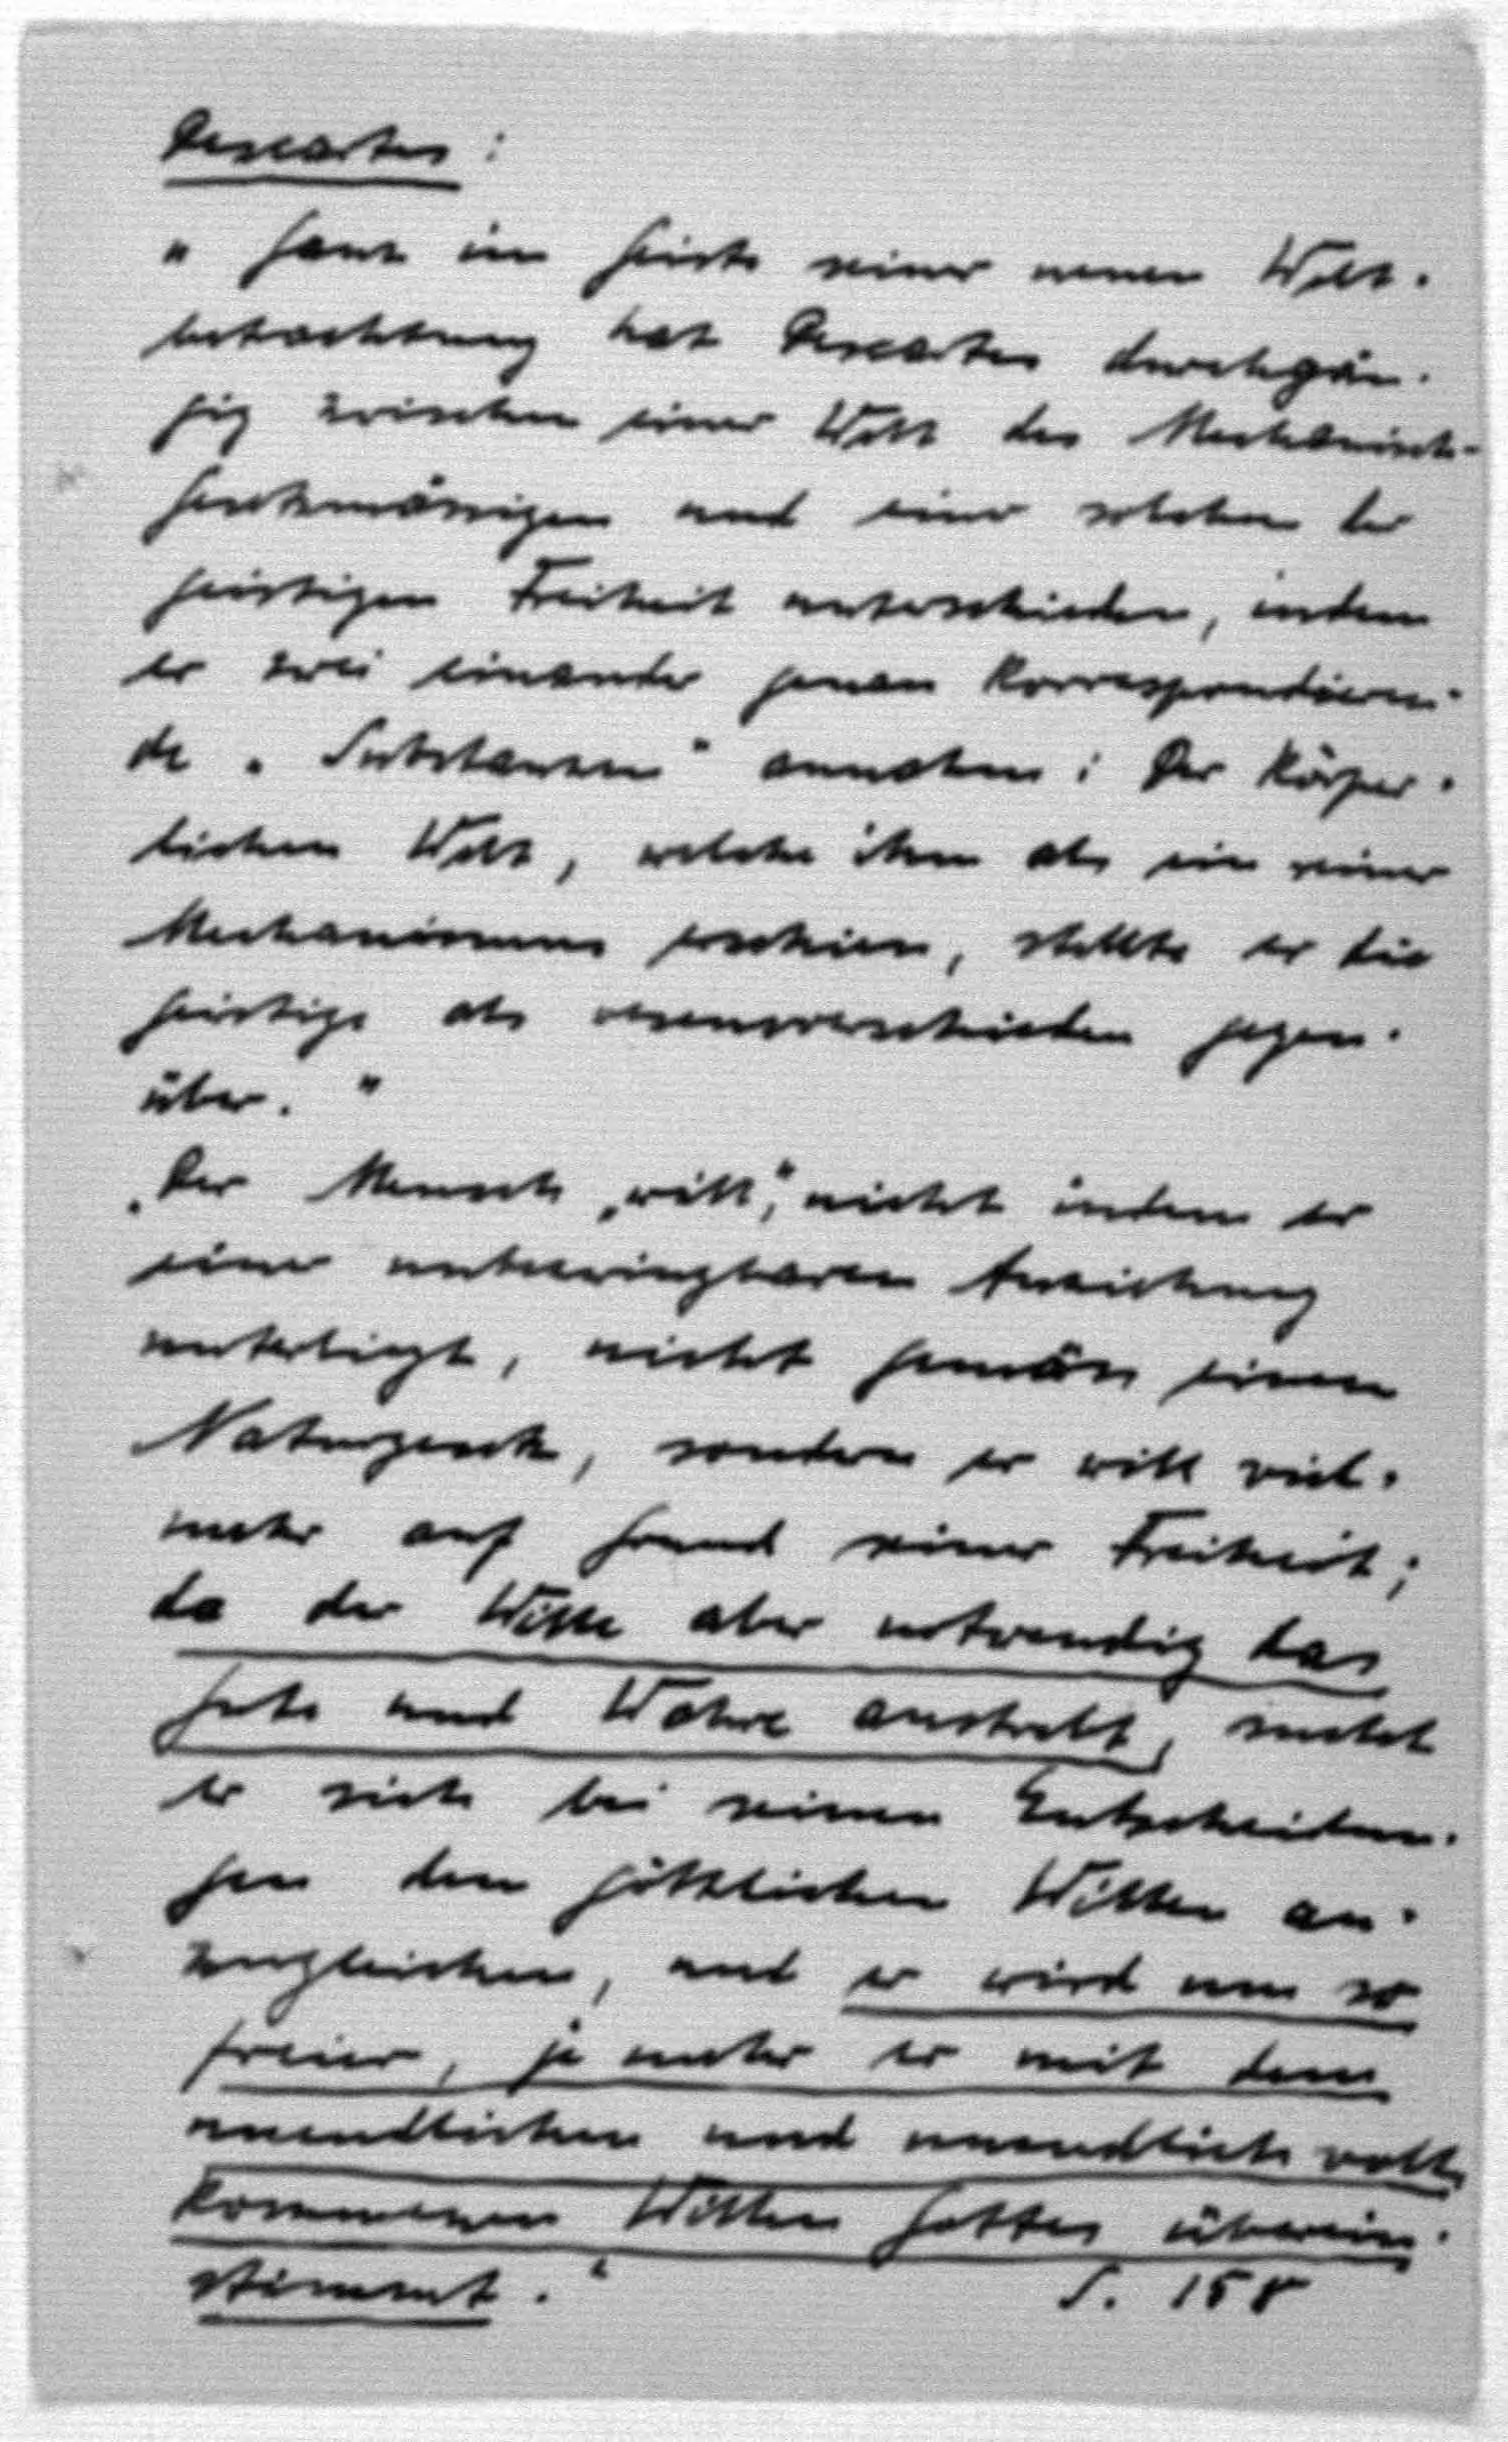 Descartes :
" Ganz im Geiste seiner neuen Welt-
betrachtung hat Descartes durchgän-
gig zwischen einer Welt des Mechanisch-
Gesetzmässigen und einer solchen der
geistigen Freiheit unterschieden, indem
er zwei einander genau korrespondieren-
de „Substanzen" annahm: Der körper-
lichen Welt, welche ihm als ein reiner
Mechanismus erschien, stellte er die
geistige als wesensverschieden gegen-
über. "
„Der Mensch „will", nicht indem er
einer unbezwingbaren Anziehung
unterliegt, nicht gemäss einem
Naturgesetz, sondern er will viel-
mehr auf Grund seiner Freiheit;
da der Wille aber notwendig das
Gute und Wahre anstrebt, sucht
er sich bei seinen Entscheidun-
gen dem göttlichen Willen an-
zugleichen, und er wird um so
freier, je mehr er mit dem
unendlichen und unendlich voll-
kommenen Willen Gottes überein-
stimmt. " S. 158